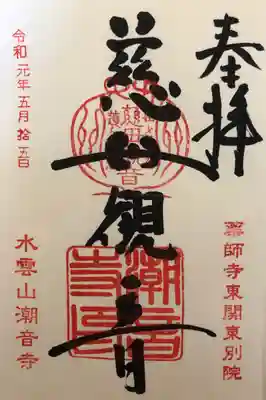 奉拝
薬師寺東関東別院
慈母観音
潮音寺印
令和元年五月拾五日
水雲山潮音寺